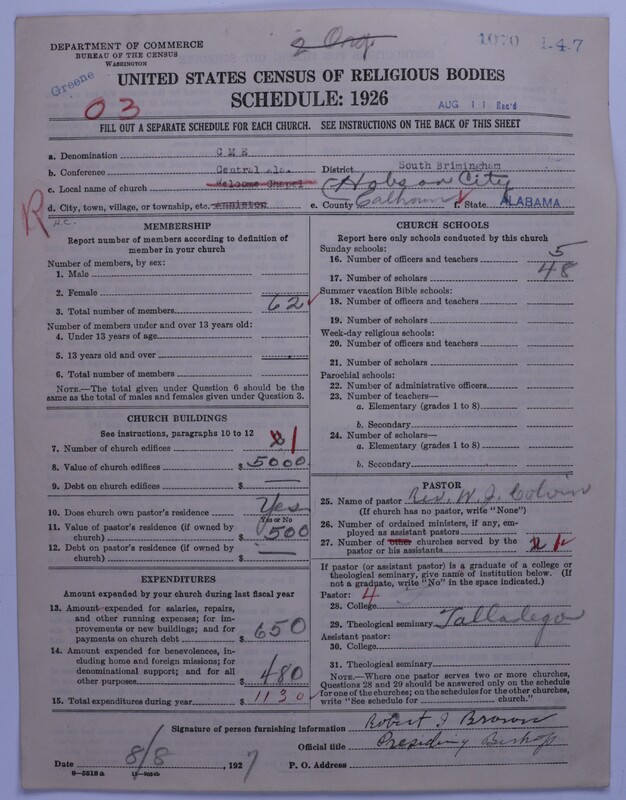 2 Org.
DEPARTMENT OF COMMERCE
BUREAU OF THE CENSUS
WASHINGTON
1070 1-47
Greene
UNITED STATES CENSUS OF RELIGIOUS BODIES
SCHEDULE: 1926
AUG 11 Rec'd
03
FILL OUT A SEPARATE SCHEDULE FOR EACH CHURCH. SEE INSTRUCTIONS ON THE BACK OF THIS SHEET
a. Denomination C M E
b. Conference Central Ala. District South Brimingham
c. Local name of church Welcome Chapel Hobson City
d. City, town, village, or township, etc. Anniston e. County Calhoun f. State ALABAMA
R
MEMBERSHIP
Report number of members according to definition of
member in your church
Number of members, by sex:
1. Male
2. Female
3. Total number of members 62
Number of members under and over 13 years old:
4. Under 13 years of age
5. 13 years old and over
6. Total number of members
NOTE.—The total given under Question 6 should be the
same as the total of males and females given under Question 3.
CHURCH BUILDINGS
See instructions, paragraphs 10 to 12
7. Number of church edifices 1
8. Value of church edifices $ 5000
9. Debt on church edifices $ —
10. Does church own pastor's residence Yes
Yes or No
11. Value of pastor's residence (if owned by
church) $ 500
12. Debt on pastor's residence (if owned by
church) $ —
EXPENDITURES
Amount expended by your church during last fiscal year
13. Amount expended for salaries, repairs,
and other running expenses; for im-
provements or new buildings; and for
payments on church debt $ 650
14. Amount expended for benevolences, in-
cluding home and foreign missions; for
denominational support; and for all
other purposes $ 480
15. Total expenditures during year $ 1130
CHURCH SCHOOLS
Report here only schools conducted by this church
Sunday schools:
16. Number of officers and teachers 5
17. Number of scholars 48
Summer vacation Bible schools:
18. Number of officers and teachers
19. Number of scholars
Week-day religious schools:
20. Number of officers and teachers
21. Number of scholars
Parochial schools:
22. Number of administrative officers
23. Number of teachers—
a. Elementary (grades 1 to 8)
b. Secondary
24. Number of scholars—
a. Elementary (grades 1 to 8)
b. Secondary
PASTOR
25. Name of pastor Rev. W. J. Colvin
(If church has no pastor, write "None")
26. Number of ordained ministers, if any, em-
ployed as assistant pastors
27. Number of other churches served by the
pastor or his assistants
If pastor (or assistant pastor) is a graduate of a college or
theological seminary, give name of institution below. (If
not a graduate, write "No" in the space indicated.)
Pastor: 4
28. College
29. Theological seminary Talladega
Assistant pastor:
30. College
31. Theological seminary
NOTE.—Where one pastor serves two or more churches,
Questions 28 and 29 should be answered only on the schedule
for one of the churches; on the schedules for the other churches,
write "See schedule for church."
Signature of person furnishing information Robert J Brown
Official title Presiding Bishop
Date 8/8, 1927 P. O. Address